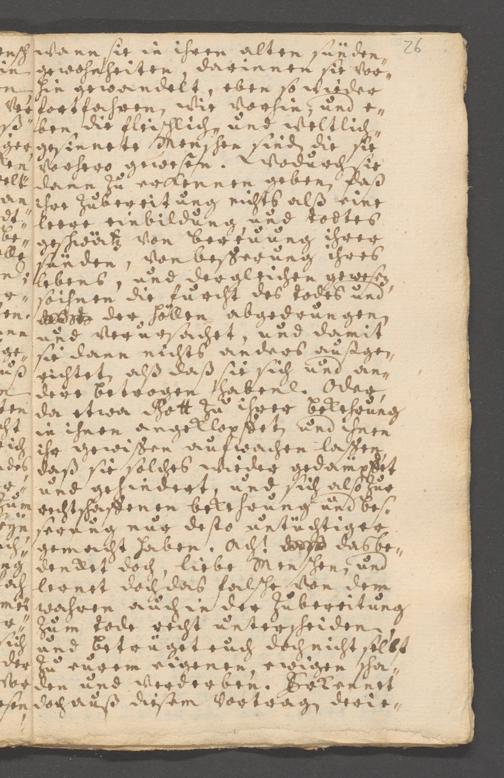 26
wann sie in ihren alten sünden-
gewohnheiten, darinnen sie vor-
hin gewandelt, eben so wieder
fortfahren, wie vorhin, und e-
ben die fleischlich- und weltlich-
gesinnete Menschen sind, die sie
vorhero gewesen. Wodurch sie
dann zu erkennen geben, daß
ihre Zubereitung nichts alß eine
leere einbildung, und todtes
geschwätz von bereuung ihrer
sünden, von besserung ihres
lebens, und dergleichen gewesen,
ihnen die furcht des todes und
der höllen abgedrungen
und verursachet, und damit
sie dann nichts anders außge-
richtet, alß daß sie sich und an-
dere betrogen haben. Oder,
da etwa Gott zu ihrer bekehrung
in ihnen angeklopffet, und ihnen
ihr gewißen aufwachen laßen,
daß sie solches wieder gedämpffet
und gehindert, und sich alß zur
rechtschaffenen bekehrung und bes-
serung nur desto untüchtiger
gemacht haben. Ach! das be-
dencket doch, liebe Menschen, und
lernet doch das falsche von dem
wahren auch in der Zubereitung
zum tode recht unterscheiden,
und betrüget euch doch nicht selbst
zu eurem eigenen, ewigen scha-
den und verderben. Erkennet
doch auß diesem Vortrag, derie-